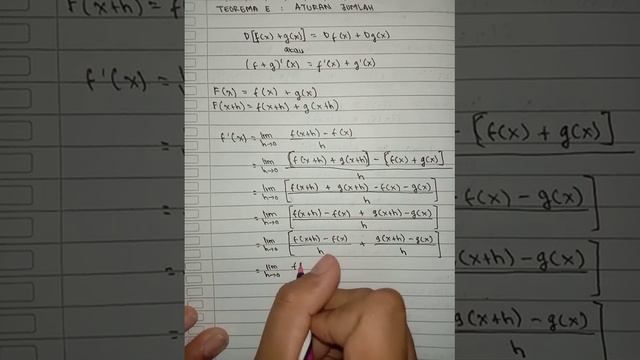 TEOREMA E : ATURAN JUMLAH
D[f(x) + g(x)] = Df(x) + Dg(x)
atau
(f + g)'(x) = f'(x) + g'(x)
F(x) = f(x) + g(x)
F(x+h) = f(x+h) + g(x+h)
F'(x) = lim h→0 f(x+h) - f(x) / h
= lim h→0 [f(x+h) + g(x+h)] - [f(x) + g(x)] / h
= lim h→0 [f(x+h) + g(x+h) - f(x) - g(x) / h]
= lim h→0 [f(x+h) - f(x) + g(x+h) - g(x) / h]
= lim h→0 [f(x+h) - f(x) / h + g(x+h) - g(x) / h]
= lim h→0 f